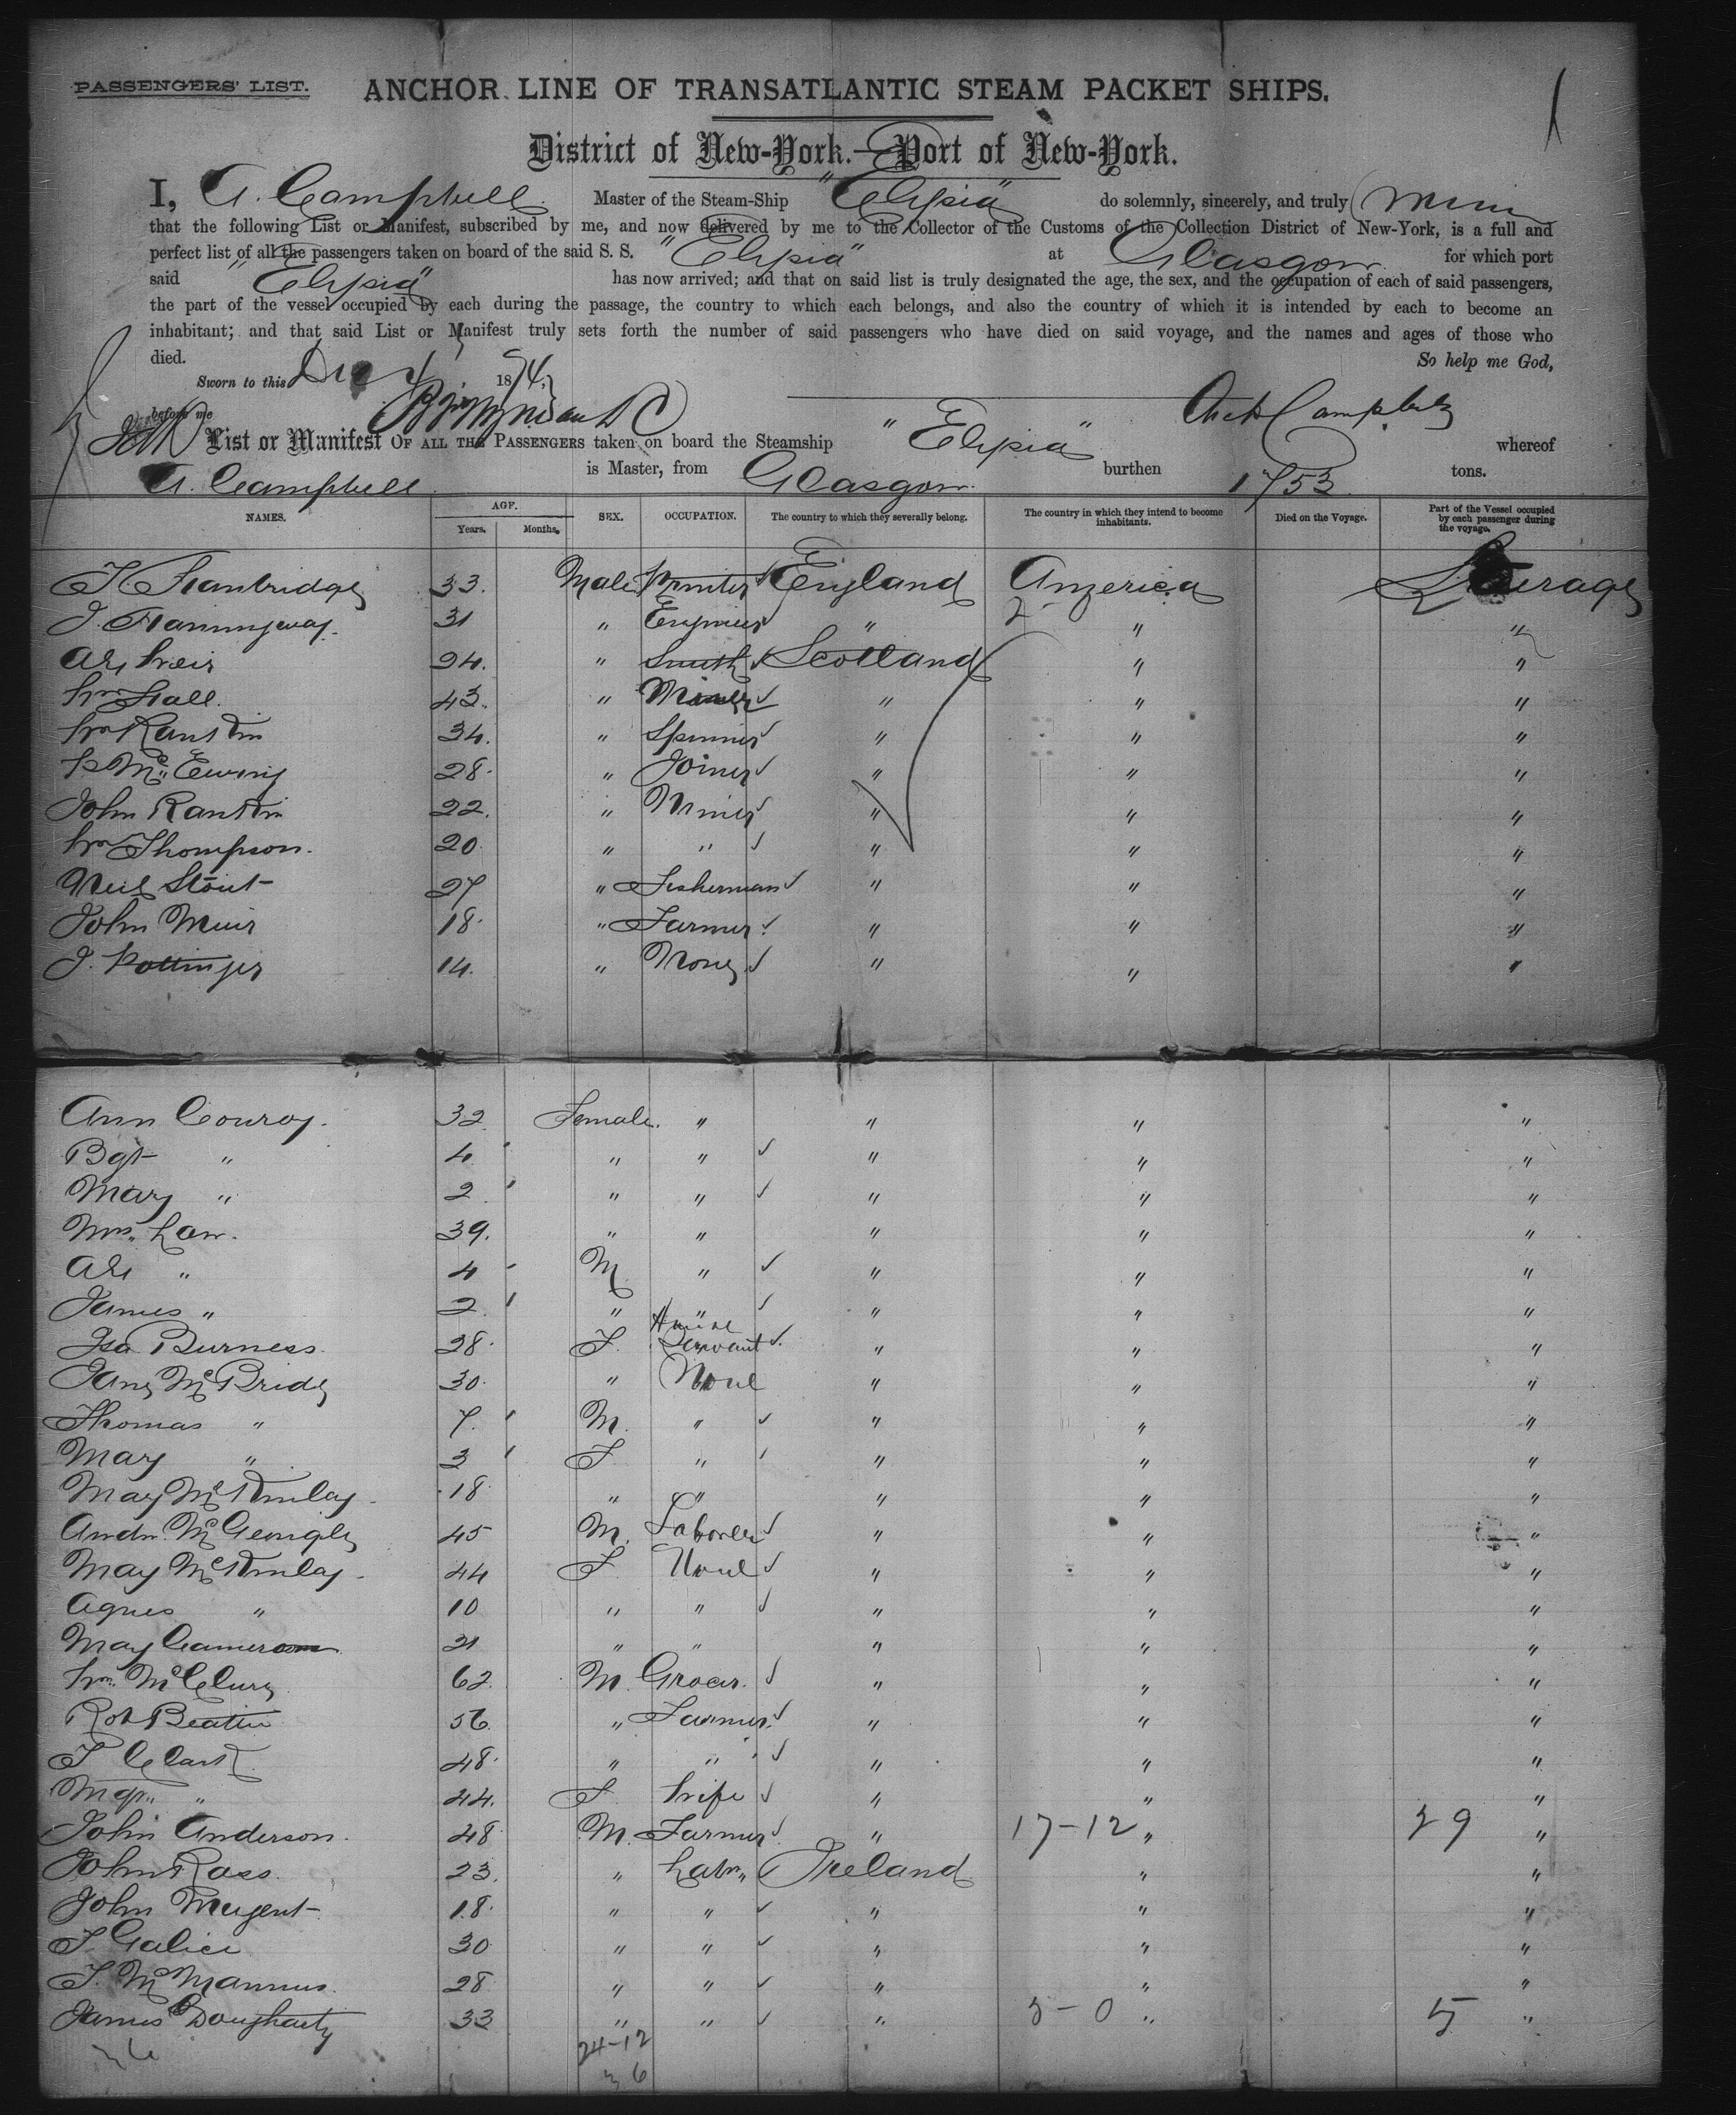 PASSENGERS' LIST.
ANCHOR LINE OF TRANSATLANTIC STEAM PACKET SHIPS.
District of New-York.—Port of New-York.
I, A. Campbell Master of the Steam-Ship "Elysia" do solemnly, sincerely, and truly
that the following List or Manifest, subscribed by me, and now delivered by me to the Collector of the Customs of the Collection District of New-York, is a full and
perfect list of all the passengers taken on board of the said S. S. "Elysia" at Glasgow for which port
said "Elysia" has now arrived; and that on said list is truly designated the age, the sex, and the occupation of each of said passengers,
the part of the vessel occupied by each during the passage, the country to which each belongs, and also the country of which it is intended by each to become an
inhabitant; and that said List or Manifest truly sets forth the number of said passengers who have died on said voyage, and the names and ages of those who
died. So help me God,
Sworn to this Dec 4 1874
before me Arch Campbell
List or Manifest OF ALL THE PASSENGERS taken on board the Steamship "Elysia" whereof
A. Campbell is Master, from Glasgow burthen 1753 tons.
NAMES. AGE. Years. Months. SEX. OCCUPATION. The country to which they severally belong. The country in which they intend to become inhabitants. Died on the Voyage. Part of the Vessel occupied by each passenger during the voyage.
33. Male Printer England America Steerage
31 " Engineer " " "
Alex Weir 24. " Smith Scotland " "
Wm Hall. 43. " Miner " " "
Wm Rankin 34. " Spinner " " "
McEwing 28. " Joiner " " "
John Rankin 22. " Miner " " "
Wm Thompson. 20. " " " " "
Neil Stout 27 " Fisherman " " "
John Muir 18. " Farmer " " "
J. Pottinger 14. " None " " "
Ann Conroy. 32. Female. " " " "
Bgt " 4 " " " " "
Mary " 2 " " " " "
Mrs. Law. 39. " " " " "
Alex " 4 M " " " "
James " 2. " " " " "
Isa Burness. 28. F. House Servant " " "
Jane McBride 30. " None " " "
Thomas " 7. M. " " " "
Mary " 3 F " " " "
Mary McKinlay. 18 " " " " "
Andw. McGeorge 45 M. Laborer " " "
Mary McKinlay. 44 F None " " "
Agnes " 10 " " " " "
Mary Cameron 21 " " " " "
Wm. McClure 62. M. Grocer. " " "
Robt Beattie 56. " Farmer " " "
T Clark 48. " " " " "
Mgt. " 44. F Wife " " "
John Anderson. 48 M. Farmer " 17-12 " 29 "
John Ross. 23. " Labr. Ireland " "
John Nugent 18. " " " " "
30 " " " " "
T. McMannus. 28 " " " " "
James Dougharty 33 " " " 5-0 " 5 "
24-12
36